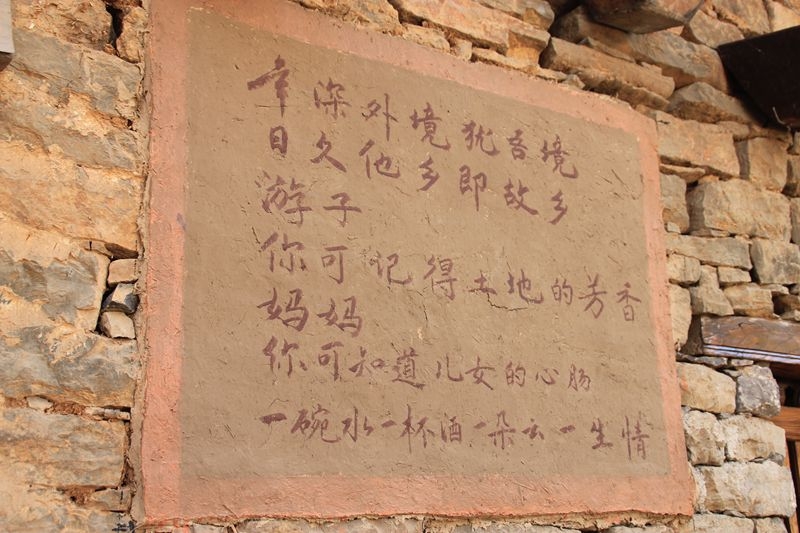 年深外境犹吾境
日久他乡即故乡
游子
你可记得土地的芳香
妈妈
你可知道儿女的心肠
一碗水一杯酒一朵云一生情